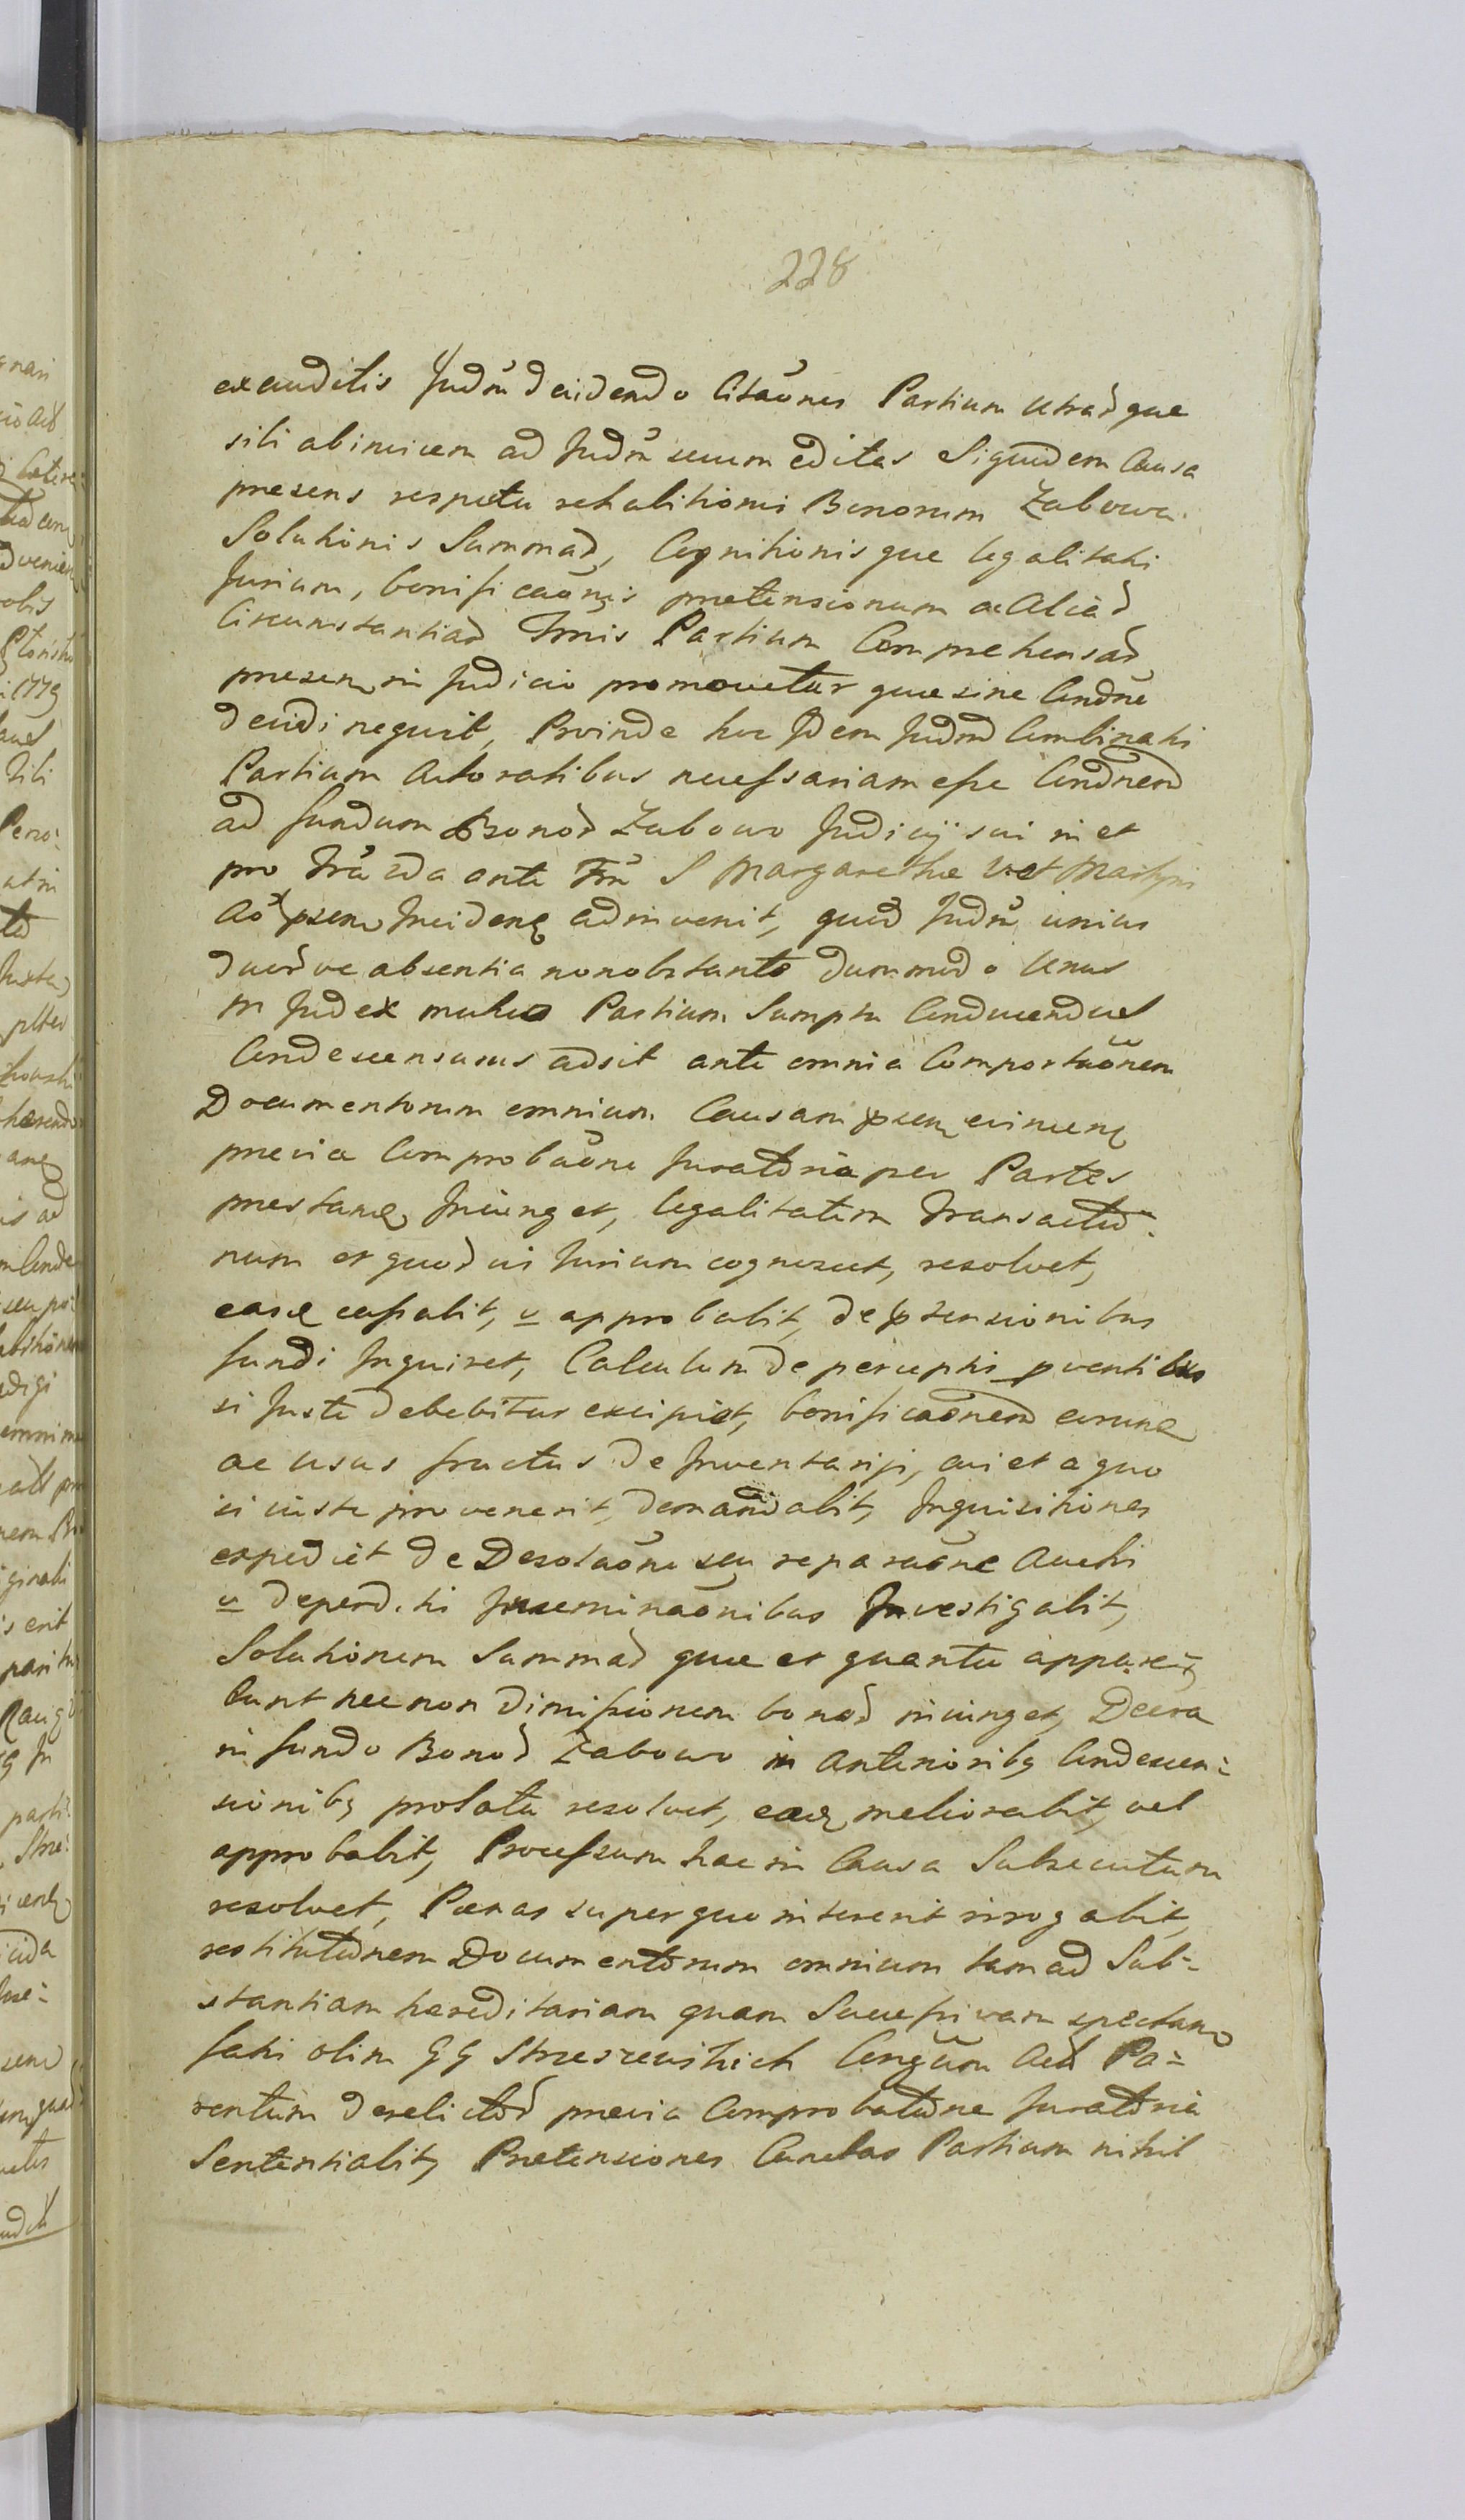 228
exauditis Judm̃ decidendo Citaõnes Partium utradque
sibi abinvicem ad Judm̃ suum editas Siquidem Causa
presens respectu rehabitionis Bonorum Zabowa
Solutionis Summad, Cognitionisque legalitatis
Jurium, bonificaõnis pretensionum ac Aliad
Circumstantiad Trnis Partium Comprehensad
presen in Judicio promovetur quae sine Condñe
decidi nequit, Proinde hoc Idem Judm Combinatis
Partium Actoratibus necessariam esse Condnem
ad fundum Bonod Zabowo Judicij sui in et
pro fra 2da ante Fm̃ S Margarethae V et Martyris
Ao psen Inciden adinvenit, quod Judm̃ unius
duodve absentia non obstante dummodo Unus
Judex mutuo Partium Sumptu Conducendus
Condescensurus adsit ante omnia Comportaõnem
Documentorum omnium Causam psen evincen
previa Comprobaõne Juratoria per Partes
prestan Injunget, legalitatem Transactio-
num et quodvis Jurium cognoscet, resolvet,
easq cassabit, v approbabit, de ptensionibus
fundi Inquiret, Calculum de perceptis pventibus
si Juste debebitur excipiet, bonificaõnem earunq
ac usus fructus de Inventarijs, cui et a quo
si iuste provenerit, demandabit, Inquisitiones
expediet de Desolaõne seu reparaõne Aucti
v deperditi Inseminaõnibus Investigabit,
Solutionem Summad quae et quanta apparebunt
bunt nec non dimissionem bonod iniunget, Decra
in fundo Bonod Zabowo in Anteriorib Condescen:
sionib prolata resolvet, eaq meliorabit, vel
approbabit, Processum hac in Causa Subsecutum
resolvet, Paenas super quo intererit irrogabit,
restitutionem Documentorum omnium tam ad Sub:
stantiam hereditariam quam Successivam spectan
fati olim GG Strzeszewskich Congum Act Pa:
rentum derelictod previa Comprobatione Juratoria
Sententiabit, Pretensiones Cunctas Partium nihil